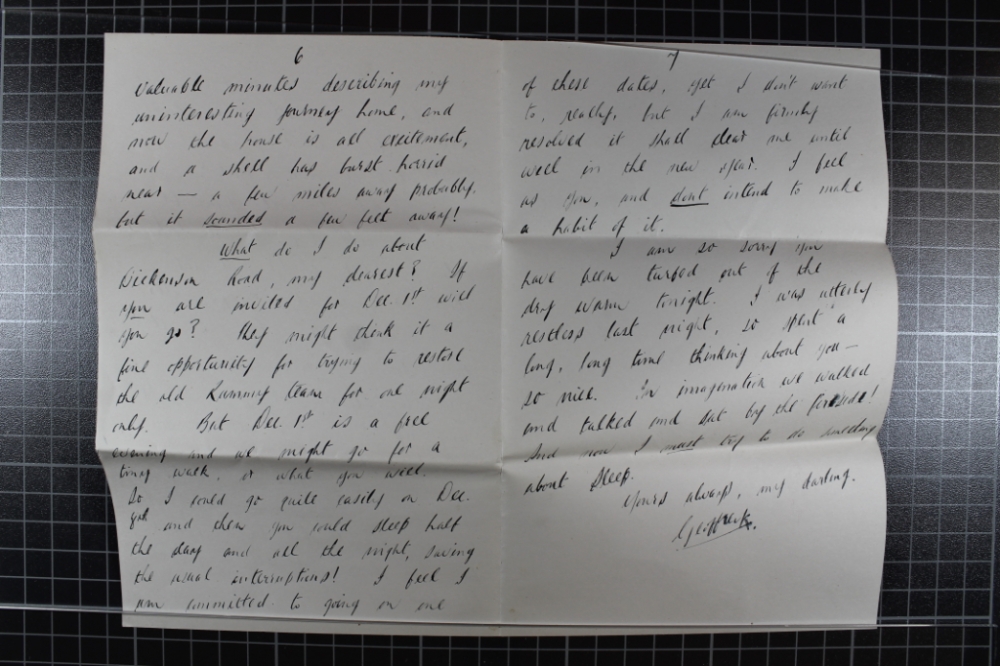 6
valuable minutes describing my
uninteresting journey home, and
now the house is all excitement,
and a shell has burst horrid
near — a few miles away probably,
but it sounded a few feet away!
What do I do about
Dickenson Road, my dearest? If
you are invited for Dec. 1st will
you go? They might think it a
fine opportunity for trying to restore
the old team for one night
only. But Dec. 1st is a free
evening and we might go for a
tiny walk, or what you will.
Or I could go quite easily on Dec.
and then you could sleep half
the day and all the night, saving
the usual interruptions! I feel I
am committed to going on one
7
of these dates, yet I don't want
to, really, but I am firmly
resolved it shall clear me until
well in the new year. I feel
as you, and don't intend to make
a habit of it.
I am so sorry you
have been turfed out of the
dry warm tonight. I was utterly
restless last night, so spent a
long, long time thinking about you —
so nice. In imagination we walked
and talked and sat by the fireside!
And now I must try to do something
about sleep.
Yours always, my darling.